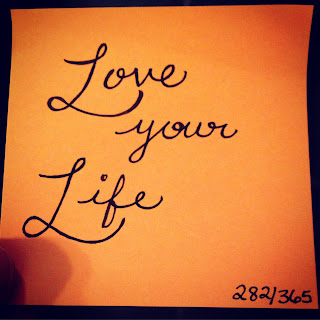 Love
your
Life
282/365